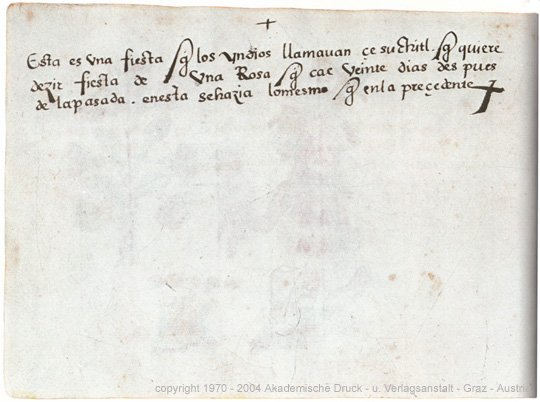 Esta es vna fiesta q̃ los yndios llamauan çe suchitl. q̃ quiere
dezir fiesta de vna Rosa q̃ cae veinte dias despues
de la pasada. en esta se hazia lo mesmo q̃ en la preçedente
copyright 1970 - 2004 Akademische Druck - u. Verlagsanstalt - Graz - Austria